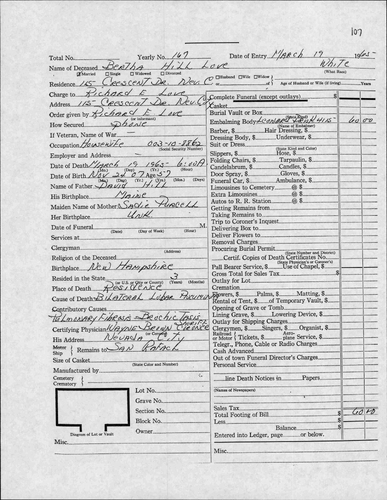 107
Total No. Yearly No. 167 Date of Entry MARCH 19 1965
Name of Deceased BERTHA HILL LOVE WHITE
Married Single Widowed Divorced Husband Wife Widow (What Race)
Residence 115 CRESCENT DR. NEV. C of Age of Husband or Wife (if living) Years
Charge to RICHARD E LOVE
Address 115 CRESCENT DR. NEV. City
Order given by RICHARD E LOVE
(or Informant)
How Secured PHONE
If Veteran, Name of War
Occupation HOUSEWIFE 003-10-8862
(Social Security Number)
Employer and Address
Date of Death MARCH 19 1965
(Mo.) (Day) (Yr.) (Hour)
Date of Birth NOV 24
Name of Father DAVID HILL
His Birthplace MAINE
Maiden Name of Mother SADIE PURCELL
Her Birthplace UNK
Date of Funeral M
(Date) (Day of Week) (Hour)
Services at
Clergyman
(Address)
Religion of the Deceased
Birthplace NEW HAMPSHIRE
Resided in the State 3
(in U.S. or City or County) (Years) (Months)
Place of Death RESIDENCE
Cause of Death BILATERAL LOBAR PNEUMONIA
Contributory Causes
Certifying Physician WAYNE BROWN CORONER
SHERIFF
His Address NEVADA CITY
(or Coroner)
Motor
Ship Remains to SAN RAFAEL
Size of Casket
(State Color and Number)
Manufactured by
Cemetery
Crematory
Lot No.
Grave No.
Section No.
Block No.
Owner
Diagram of Lot or Vault
Misc.
Complete Funeral (except outlays) $
Casket
Burial Vault or Box
(State Kind)
Embalming Body 60 00
(Name of Embalmer)
Barber, $ Hair Dressing, $
Dressing and Underwear, $
Suit or Dress
(State Kind and Color)
Slippers, $ Hose, $
Folding Chairs, $ Tarpaulin, $
Candelabrum, $ Candles, $
Door Spray, $ Gloves, $
Funeral Car, $ Ambulance, $
Limousines to Cemetery @ $
Extra Limousines @ $
Autos to R. R. Station @ $
Getting Remains from
Taking Remains to
Trip to Coroner's Inquest
Delivering Box to
Deliver Flowers to
Removal Charges
Procuring Burial Permit
(State Number and District)
Certif. Copies of Death Certificates No.
(State Physician's or Coroner's)
Pall Bearer Service, $ Use of Chapel, $
Gross Total for Sales Tax $
Outlay for Lot
Cremation
Flowers, $ Palms, $ Matting, $
Rental of Tent, $ of Temporary Vault, $
Opening of Grave or Tomb
Lining Grave, $ Lowering Device, $
Outlay for Shipping Charges
Clergymen, $ Singers, $ Organist, $
Railroad Aero-
or Motor Tickets, $ plane Service, $
Telegr., Phone, Cable or Radio Charges
Cash Advanced
Out of town Funeral Director's Charges
Personal Service
line Death Notices in Papers
(Names of Newspapers)
Sales Tax
Total Footing of Bill $ 60 00
Less $
Balance $
Entered into Ledger, page or below.
Misc.